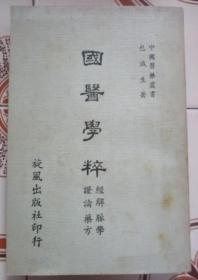 中國醫藥叢書
包識生著
國醫學粹
經解脈學
證論藥方
旋風出版社印行